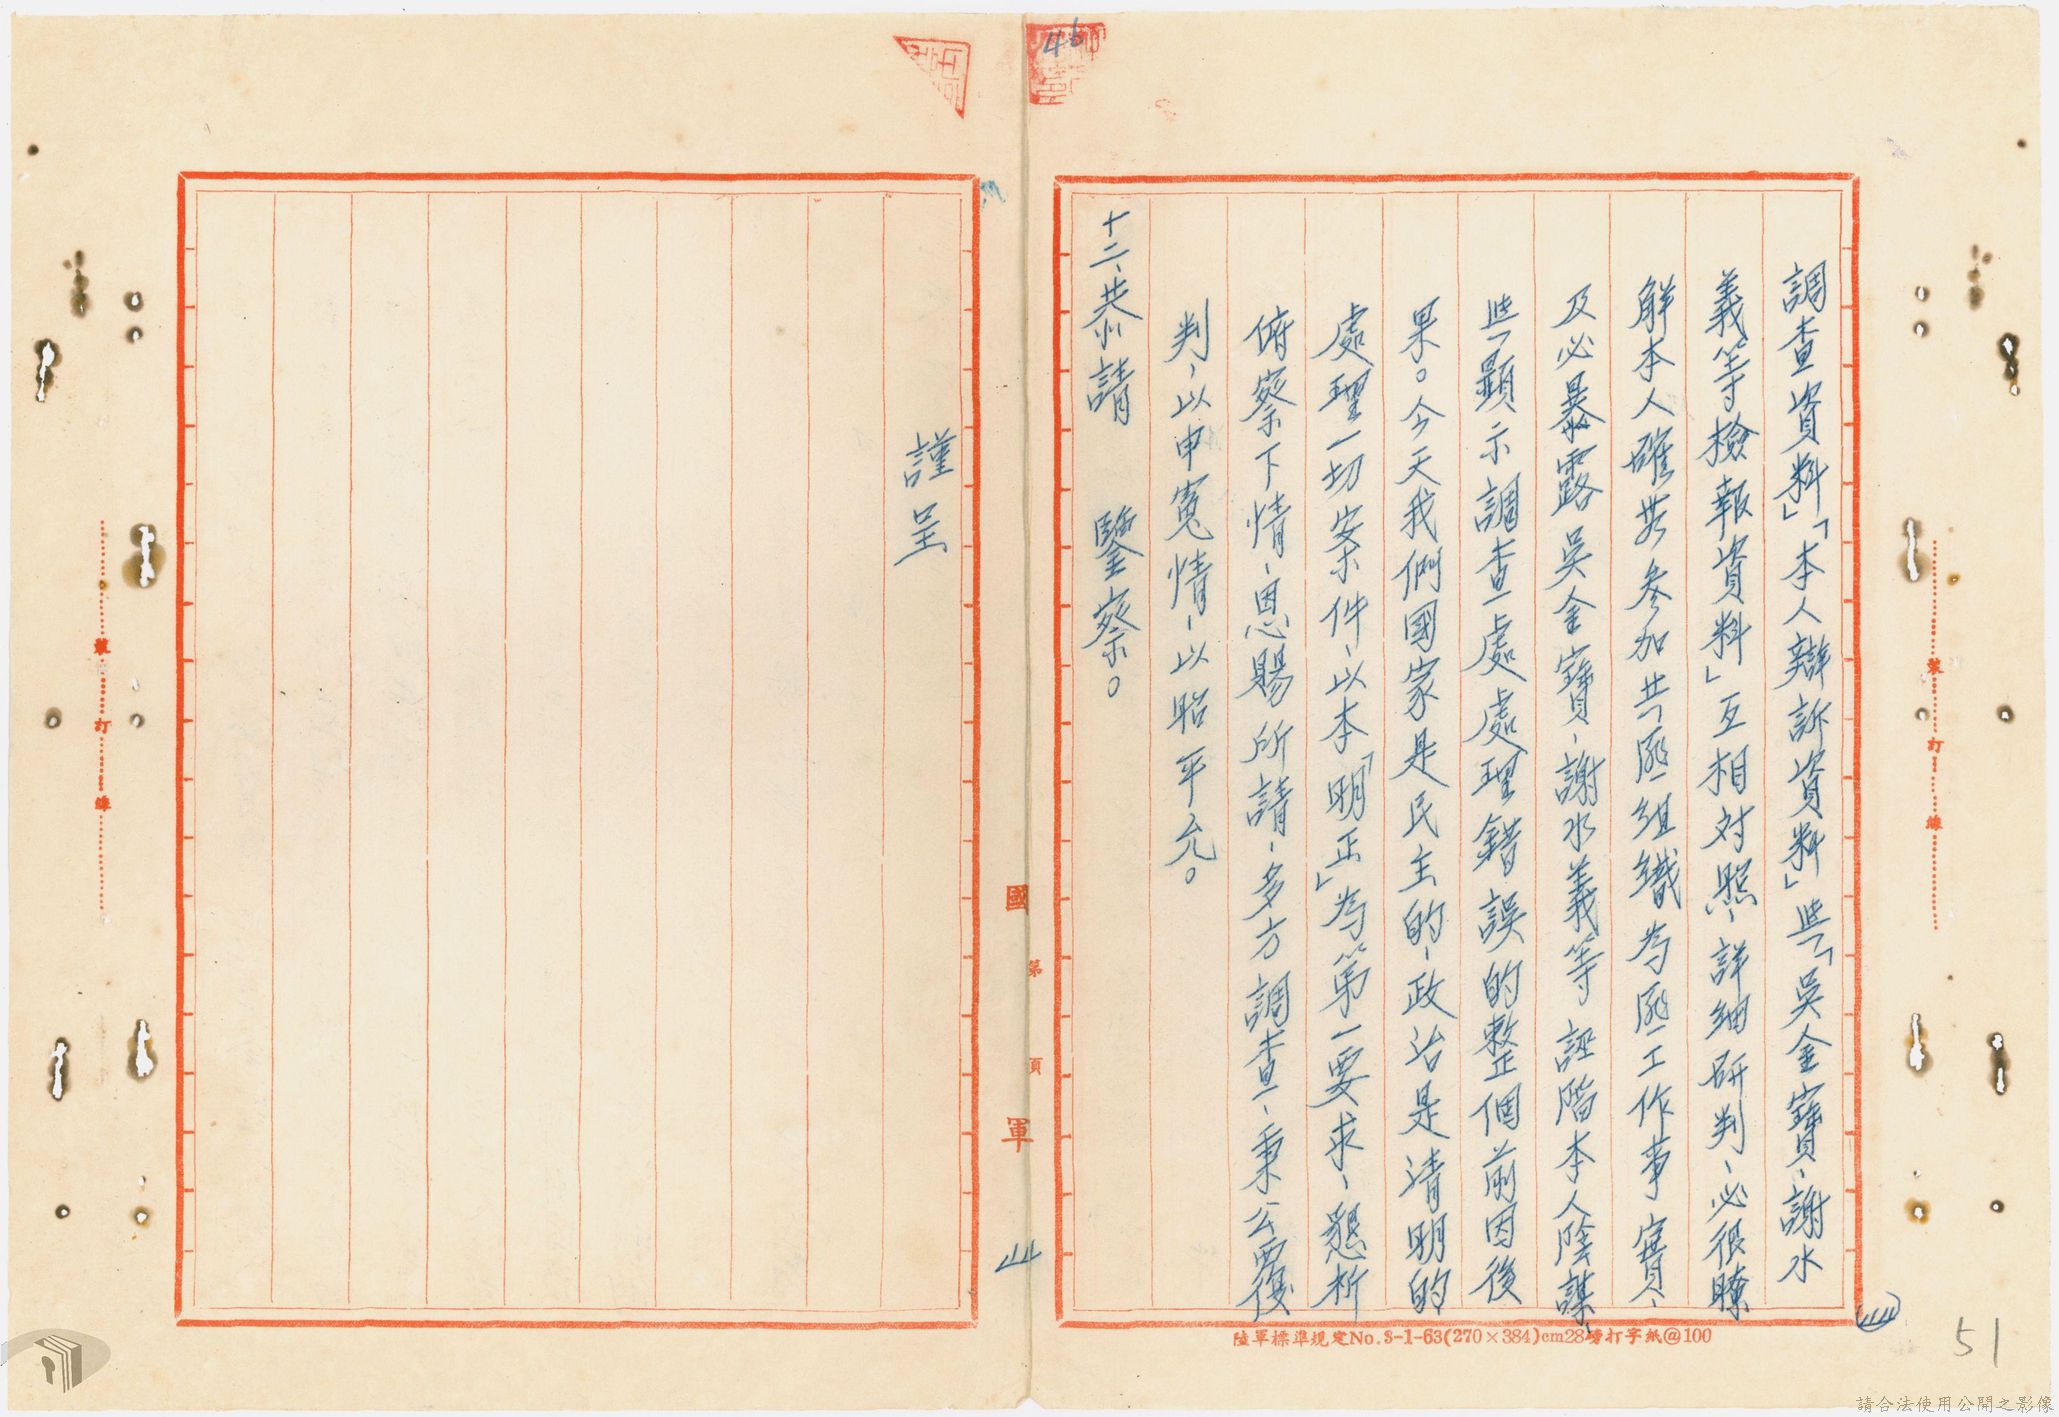 46
調查資料」「本人辯訴資料」與「吳金寶、謝水
義等檢報資料」互相对照、詳細研判、必很瞭
解本人確無參加共匪組織為匪工作事實、
及必暴露吳金寶、謝水義等誣陷本人陰謀、
與顯示調查處處理錯誤的整個前因後
果。今天我們國家是民主的、政治是清明的
處理一切案件、以本「明正」為第一要求、懇祈
俯察下情、恩賜所請、多方調查、秉公覆
判、以申冤情、以昭平允。
十二、恭請　鑒察。
謹呈
國軍
第　頁
裝訂線
裝訂線
陸軍標準規定No.3-1-63(270×384)cm28磅打字紙@100
51
請合法使用公開之影像